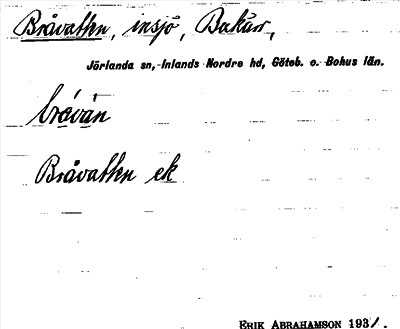 Bråvatten, insjö, Bakärr,
Jörlanda sn, Inlands Nordre hd, Göteb. o. Bohus län.
bråván
Bråvatten ek
ERIK ABRAHAMSON 1931.